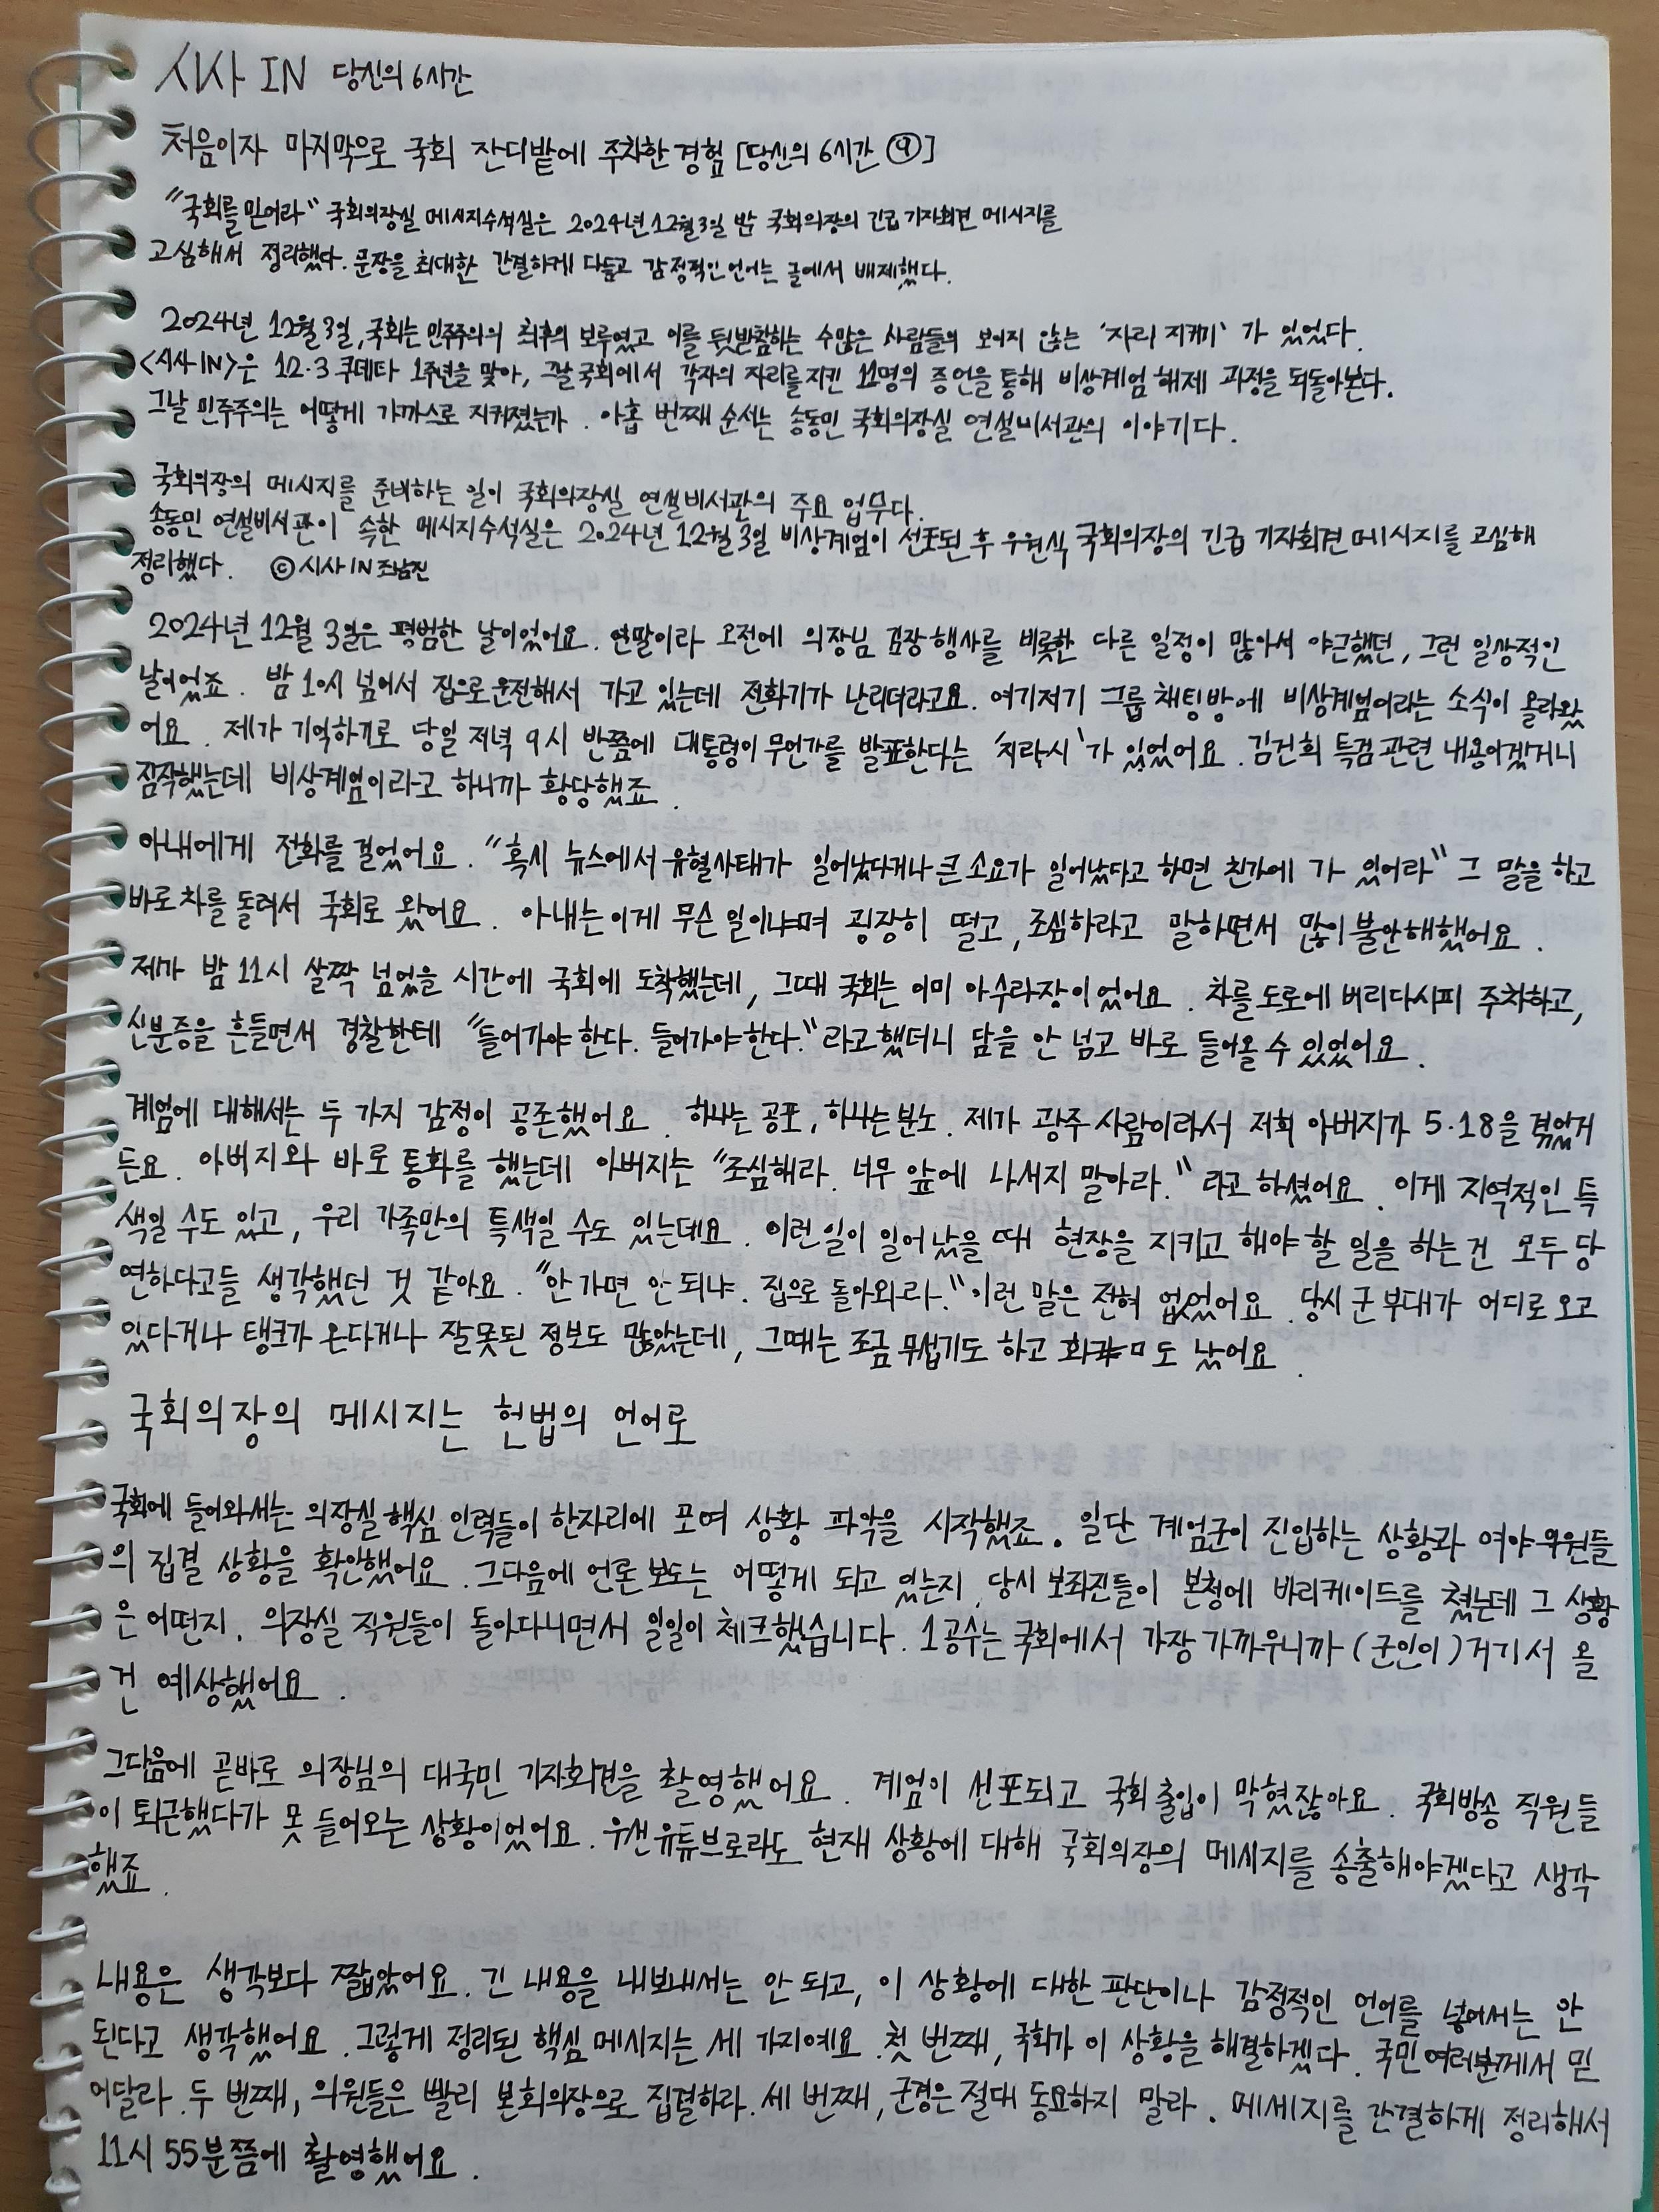 시사IN 당신의 6시간
처음이자 마지막으로 국회 잔디밭에 주차한 경험 [당신의 6시간 ⑨]
"국회를 믿어라" 국회의장실 메시지수석실은 2024년 12월 3일 밤 국회의장의 긴급 기자회견 메시지를
고심해서 정리했다. 문장을 최대한 간결하게 다듬고 감정적인 언어는 글에서 배제했다.
2024년 12월 3일, 국회는 민주주의의 최후의 보루였고 이를 뒷받침하는 수많은 사람들의 보이지 않는 '자리 지키미'가 있었다.
<시사IN>은 12·3 쿠데타 1주년을 맞아, 그날 국회에서 각자의 자리를 지킨 11명의 증언을 통해 비상계엄 해제 과정을 되돌아본다.
그날 민주주의는 어떻게 가까스로 지켜졌는가. 아홉 번째 순서는 송동민 국회의장실 연설비서관의 이야기다.
국회의장의 메시지를 준비하는 일이 국회의장실 연설비서관의 주요 업무다.
송동민 연설비서관이 속한 메시지수석실은 2024년 12월 3일 비상계엄이 선포된 후 우원식 국회의장의 긴급 기자회견 메시지를 고심해
정리했다. ©시사IN 조남진
2024년 12월 3일은 평범한 날이었어요. 연말이라 오전에 의장님 김장 행사를 비롯한 다른 일정이 많아서 야근했던, 그런 일상적인
날이었죠. 밤 10시 넘어서 집으로 운전해서 가고 있는데 전화기가 난리더라고요. 여기저기 그룹 채팅방에 비상계엄이라는 소식이 올라왔
어요. 제가 기억하기로 당일 저녁 9시 반쯤에 대통령이 무언가를 발표한다는 '지라시'가 있었어요. 김건희 특검 관련 내용이겠거니
짐작했는데 비상계엄이라고 하니까 황당했죠.
아내에게 전화를 걸었어요. "혹시 뉴스에서 유혈사태가 일어났다거나 큰 소요가 일어났다고 하면 친가에 가 있어라" 그 말을 하고
바로 차를 돌려서 국회로 왔어요. 아내는 이게 무슨 일이냐며 굉장히 떨고, 조심하라고 말하면서 많이 불안해했어요.
제가 밤 11시 살짝 넘었을 시간에 국회에 도착했는데, 그때 국회는 이미 아수라장이었어요. 차를 도로에 버리다시피 주차하고,
신분증을 흔들면서 경찰한테 "들어가야 한다. 들어가야 한다."라고 했더니 담을 안 넘고 바로 들어올 수 있었어요.
계엄에 대해서는 두 가지 감정이 공존했어요. 하나는 공포, 하나는 분노. 제가 광주 사람이라서 저희 아버지가 5·18을 겪었거
든요. 아버지와 바로 통화를 했는데 아버지는 "조심해라. 너무 앞에 나서지 말아라."라고 하셨어요. 이게 지역적인 특
색일 수도 있고, 우리 가족만의 특색일 수도 있는데요. 이런 일이 일어났을 때 현장을 지키고 해야 할 일을 하는 건 모두 당
연하다고들 생각했던 것 같아요. "안 가면 안 되냐. 집으로 돌아와라." 이런 말은 전혀 없었어요. 당시 군 부대가 어디로 오고
있다거나 탱크가 온다거나 잘못된 정보도 많았는데, 그때는 조금 무섭기도 하고 화도 났어요.
국회의장의 메시지는 헌법의 언어로
국회에 들어와서는 의장실 핵심 인력들이 한자리에 모여 상황 파악을 시작했죠. 일단 계엄군이 진입하는 상황과 여야 의원들
의 집결 상황을 확인했어요. 그다음에 언론 보도는 어떻게 되고 있는지, 당시 보좌진들이 본청에 바리케이드를 쳤는데 그 상황
은 어떤지, 의장실 직원들이 돌아다니면서 일일이 체크했습니다. 1공수는 국회에서 가장 가까우니까 (군인이) 거기서 올
건 예상했어요.
그다음에 곧바로 의장님의 대국민 기자회견을 촬영했어요. 계엄이 선포되고 국회 출입이 막혔잖아요. 국회방송 직원들
이 퇴근했다가 못 들어오는 상황이었어요. 우선 유튜브로라도 현재 상황에 대해 국회의장의 메세지를 송출해야겠다고 생각
했죠.
내용은 생각보다 짧았어요. 긴 내용을 내보내서는 안 되고, 이 상황에 대한 판단이나 감정적인 언어를 넣어서는 안
된다고 생각했어요. 그렇게 정리된 핵심 메시지는 세 가지예요. 첫 번째, 국회가 이 상황을 해결하겠다. 국민 여러분께서 믿
어달라. 두 번째, 의원들은 빨리 본회의장으로 집결하라. 세 번째, 군경은 절대 동요하지 말라. 메세지를 간결하게 정리해서
11시 55분쯤에 촬영했어요.